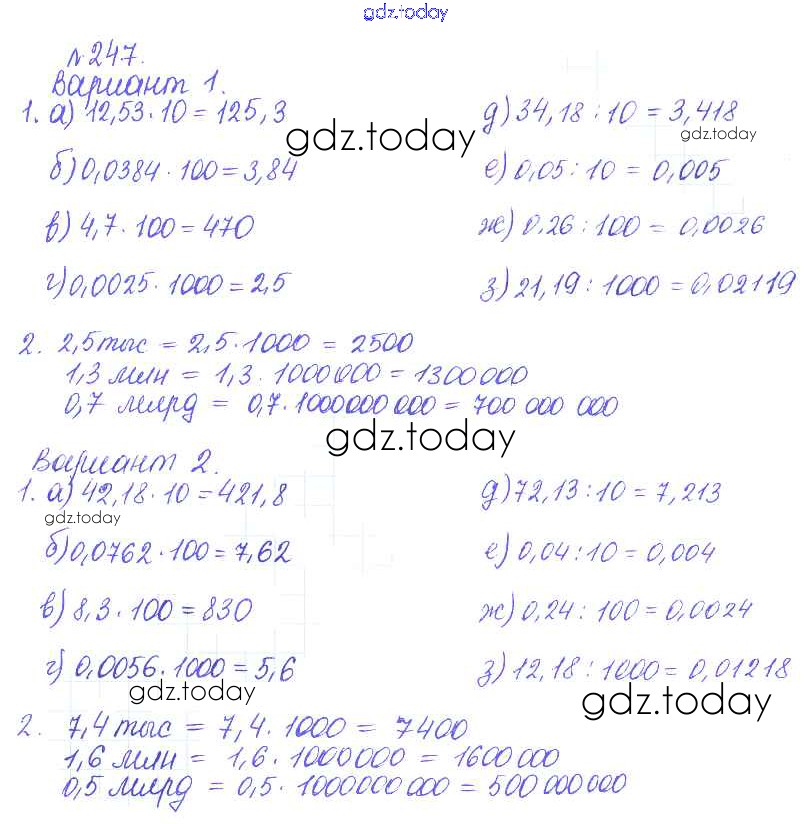 gdz.today
№247.
Вариант 1.
1. а) 12,53·10 = 125,3
д) 34,18 : 10 = 3,418
gdz.today
gdz.today
б) 0,0384 · 100 = 3,84
е) 0,05 : 10 = 0,005
в) 4,7 · 100 = 470
ж) 0,26 : 100 = 0,0026
г) 0,0025 · 1000 = 2,5
з) 21,19 : 1000 = 0,02119
2. 2,5 тыс = 2,5 · 1000 = 2500
1,3 млн = 1,3 · 1000000 = 1300000
0,7 млрд = 0,7 · 1000000000 = 700 000 000
gdz.today
Вариант 2.
1. а) 42,18 · 10 = 421,8
д) 72,13 : 10 = 7,213
gdz.today
б) 0,0762 · 100 = 7,62
е) 0,04 : 10 = 0,004
в) 8,3 · 100 = 830
ж) 0,24 : 100 = 0,0024
г) 0,0056 · 1000 = 5,6
з) 12,18 : 1000 = 0,01218
gdz.today
gdz.today
2. 7,4 тыс = 7,4 · 1000 = 7400
1,6 млн = 1,6 · 1000000 = 1600000
0,5 млрд = 0,5 · 1000000000 = 500000000